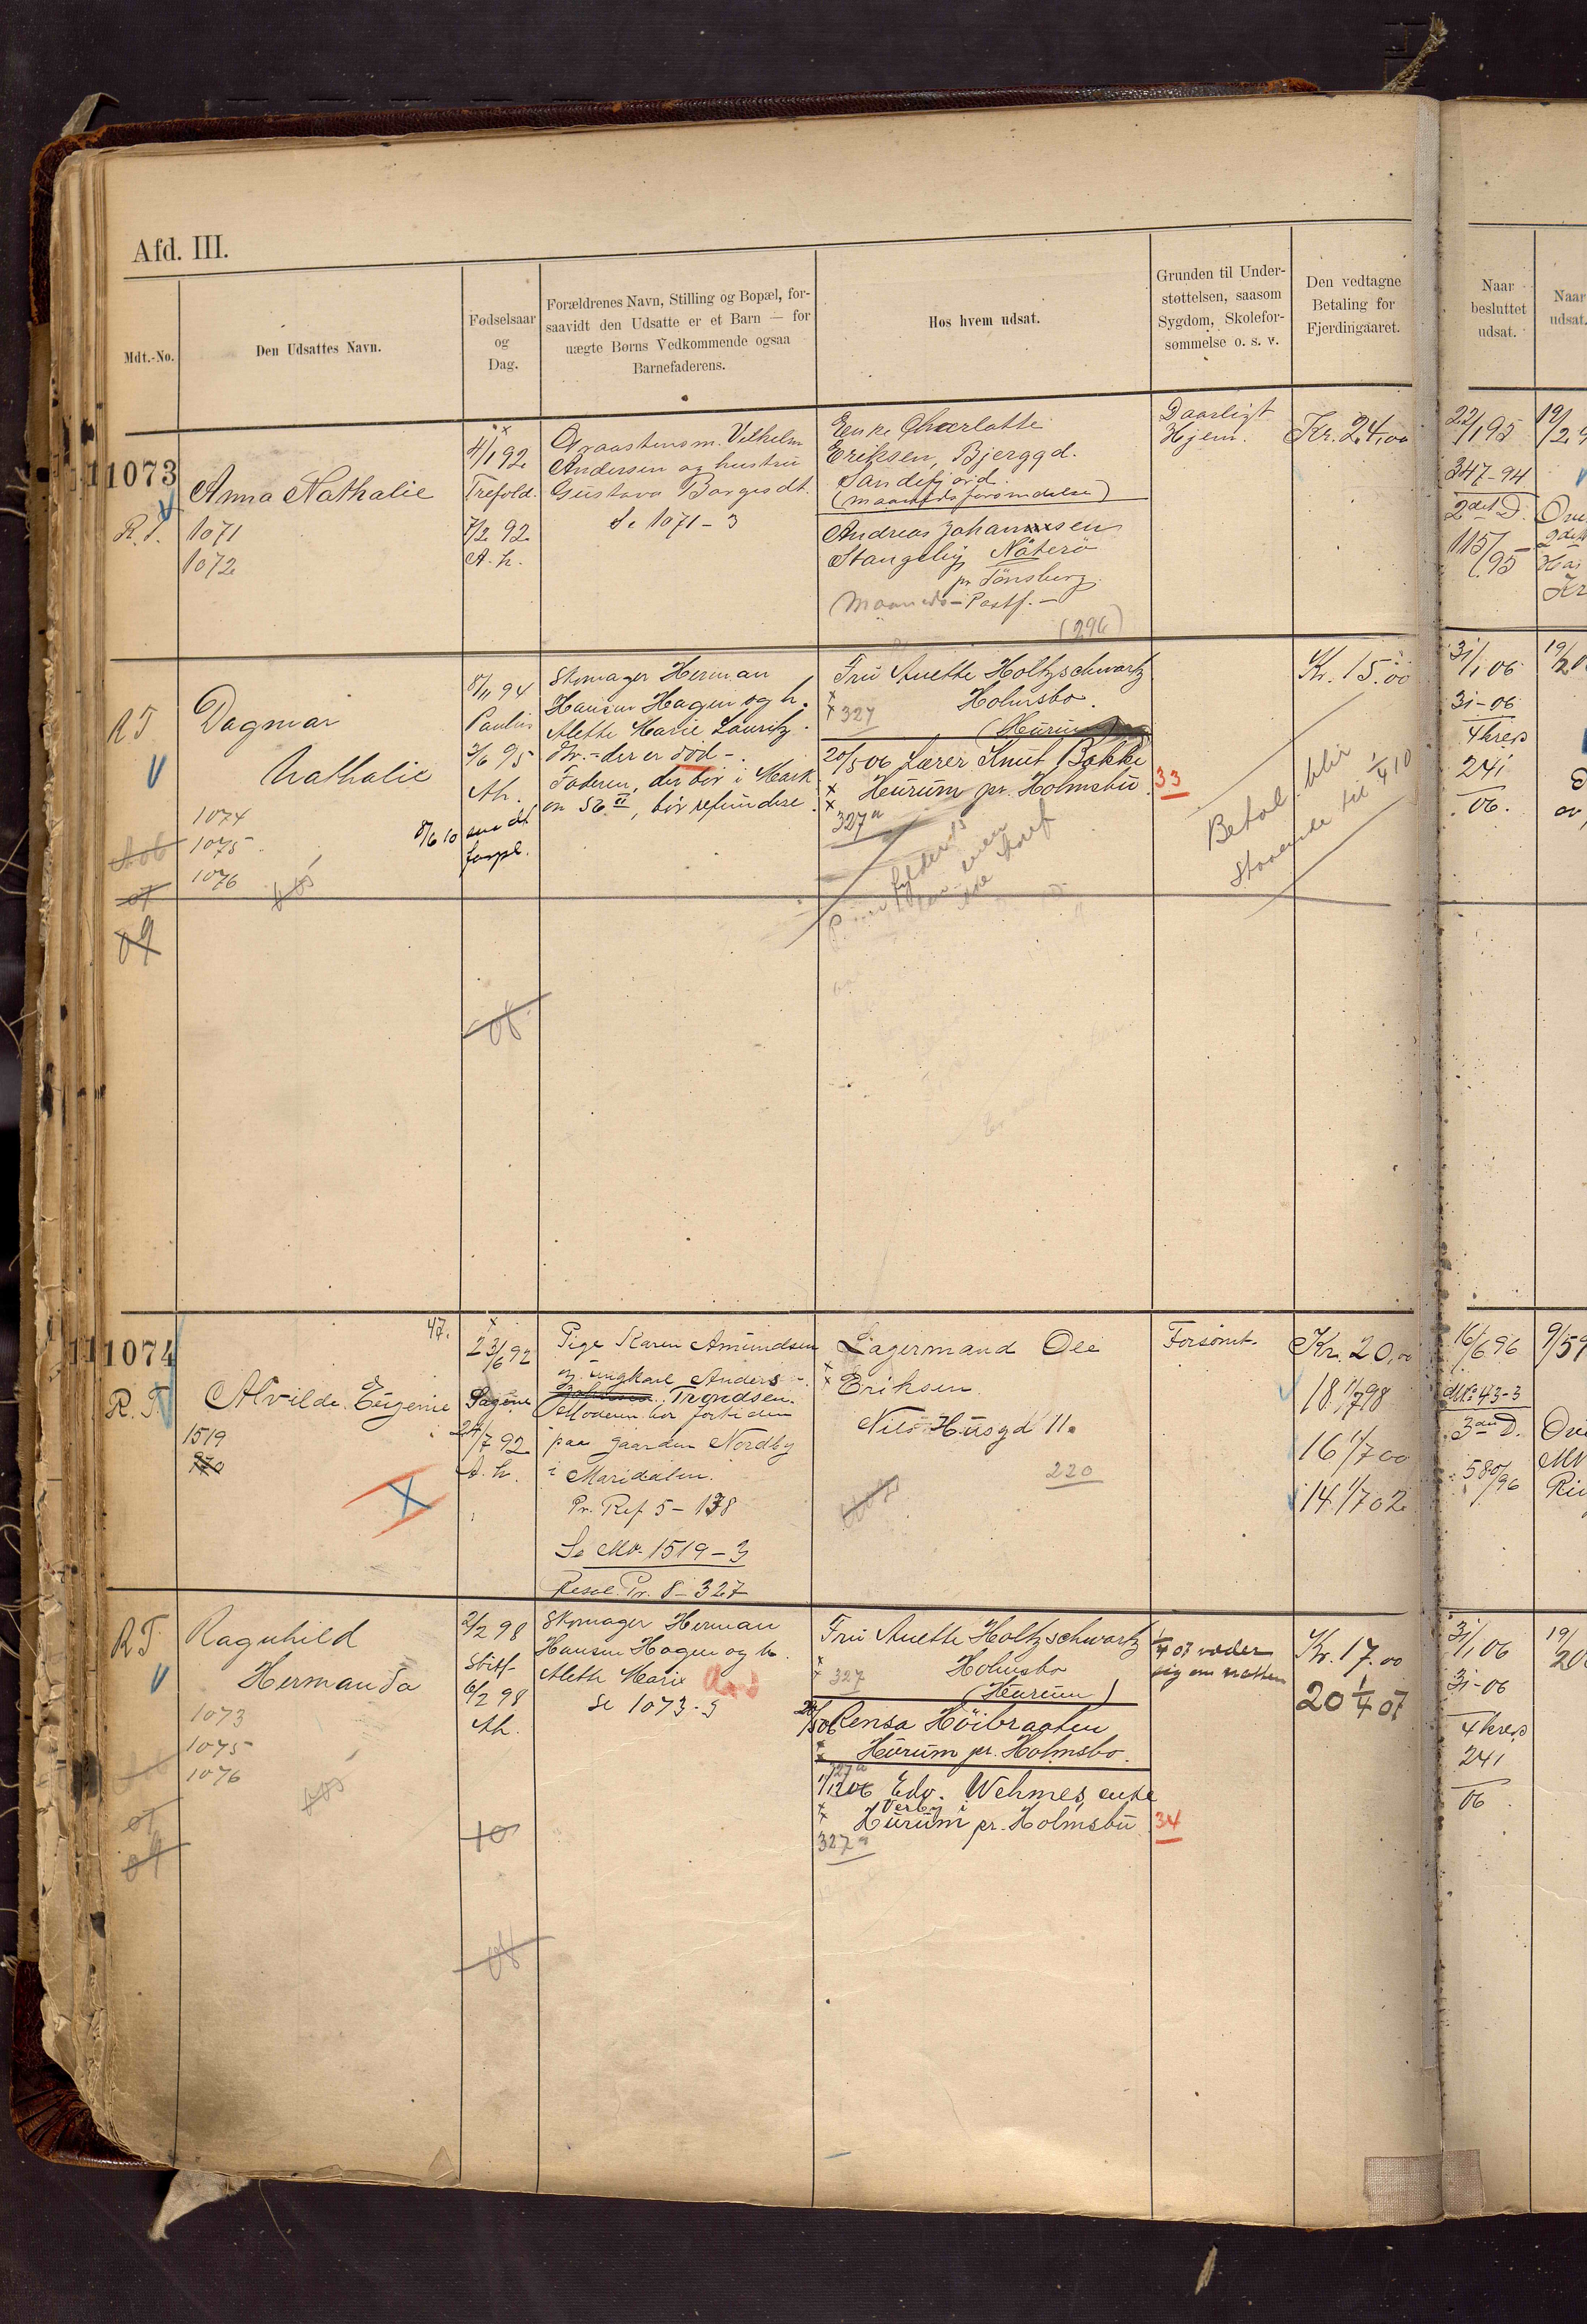 Afd. III.
Mdt.-No.
Den Udsattes Navn.
Fødselsaar
og
Dag.
Forældrenes Navn, Stilling og Bopæl, for-
saavidt den Udsatte er et Barn — for
uægte Børns Vedkommende ogsaa
Barnefaderens.
Hos hvem udsat.
Grunden til Under-
støttelsen, saasom
Sygdom, Skolefor-
sømmelse o. s. v.
Den vedtagne
Betaling for
Fjerdingaaret.
Naar
besluttet
udsat.
Naar
udsat.
11073
R. T.
Anna Nathalie
1071
1072
4/1 92
Trefold.
7/2 92
A. h.
Graastensm. Vilhelm
Andersen og hustru
Gustava Borgesdt.
Se 1071-3
Enke Charlotte
Eriksen, Bjerggd.
Sandefjord.
Andreas Johannsen
Stangeby Nøterø
pr Tönsberg.
Maaneds-Postf.-
(296)
Daarligt
Hjem.
Kr. 24,00
22/1 95
347-94
2det D.
115/95
RT
Dagmar
Nathalie
1074
1075
1076
8/11 94
Paulus
3/6 95
Ah.
8/6 10
forpl.
Skomager Herman
Hansen Hagen og h.
Alette Marie Lauritz
dtr.- der er död -.
Faderen, der bor i Mark
on 56 II, bör refundere.
Fru Anette Holtzschwartz
Holmsbo.
327
(Hurum)
20/5 06 Lærer Knut Bakke
Hurum pr. Holmsbu
33
327a
Kr. 15.00
Betal. blir
staaende til 1/4 10
31/1 06
31-06
4 kreds
241
06.
11074
R. T.
47.
Alvilde Eugenie
1519
23/6 92
Sagene
24/7 92
A. h.
Pige Karen Amundsen
og ungkarl Anders
Trondsen.
Moderen bor fortiden
paa gaarden Nordby
i Maridalen.
Pr. Ref 5-138
Se No. 1519-3
Resol. Pr. 8-327
Lagermand Ole
Eriksen
Nils Husgd 11.
220
Forsömt.
Kr. 20,00
18 1/7 98
16 1/7 00
14 1/7 02
16/6 96
No 43-3
3die D.
580/96
RT
Ragnhild
Hermanda
1073
1075
1076
2/2 98
Stift.
6/2 98
Ah.
Skomager Herman
Hansen Hagen og h.
Alette Marie
Se 1073-3
Fru Anette Holtzschwartz
Holmsbo
327
(Hurum)
20/5 06 Rensa Höibraaten
Hurum pr. Holmsbo.
327a
1/12 06 Edv. Wehmes enke
Verby i
Hurum pr. Holmsbu
34
327a
1/4 07 væder
sig om natten
Kr. 17.00
20 1/4 07
31/1 06
31-06
4 kreds
241
06